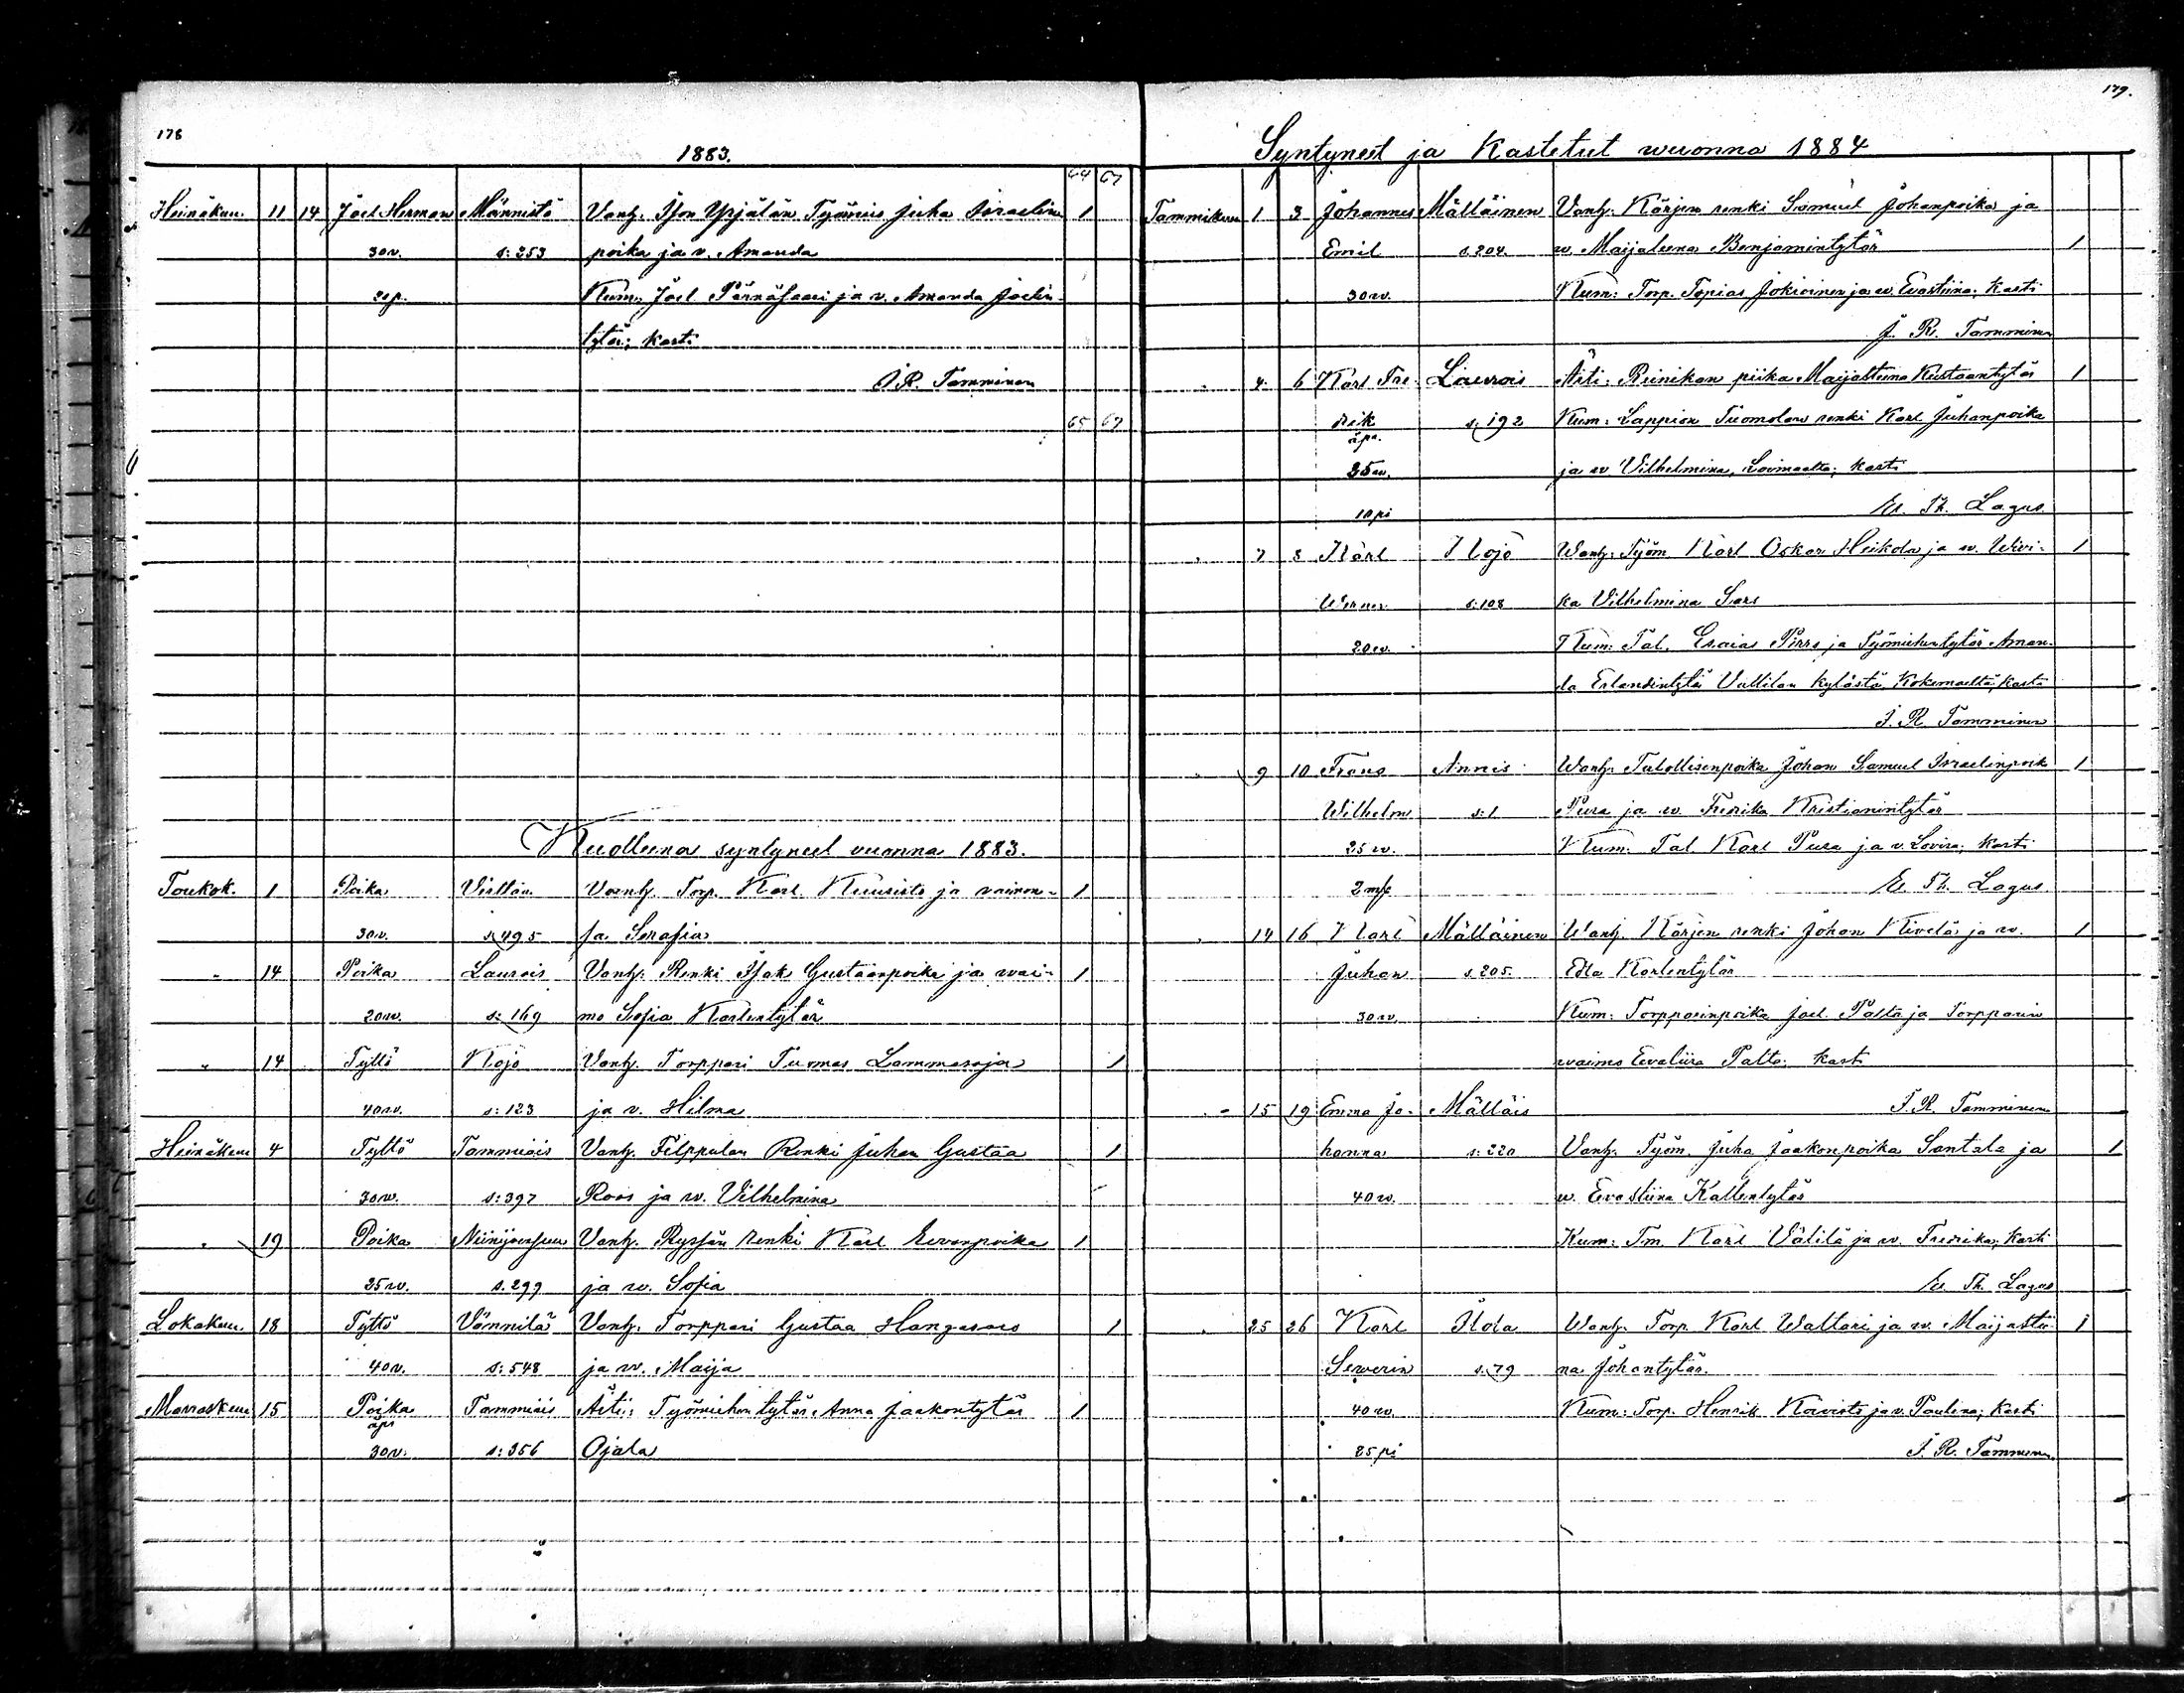 178
1883.
64 67
Heinäkuu 11 14 Joel Herman Männistö Vanh. Ison Ypjälän Työmies Juha Israelin 1
30 v. s: 253 poika ja v. Amanda
2 1 p. Kum: Joel Pärnäsaari ja v. Amanda Joelin
tytär; kasti
J. R. Tamminen
65 67
Kuolleena syntyneet vuonna 1883.
Toukok. 1 Poika Virttaa Vanh. Torp. Karl Kuusisto ja vaimon- 1
30 v. s. 495 sa Serafia
" 14 Poika Laurois Vanh. Renki Isak Gustaanpoika ja wai- 1
20 w. s: 169 mo Sofia Karlentytär
" 14 Tyttö Kojo Vanh. Torppari Tuomas Lammasoja 1
40 w. s: 123 ja v. Hilma
Heinäkuu 4 Tyttö Tammiais Vanh. Filppulan Renki Juhan Gustaa 1
30 w. s: 397 Roos ja w. Vilhelmina
" 19 Poika Niinijoensuu Vanh. Ryssän renki Karl Eevanpoika 1
25 w. s. 299 ja w. Sofia
Lokakuu 18 Tyttö Vännilä Vanh. Torppari Gustaa Hangasoes 1
40 v. s: 548 ja w. Maija
Marraskuu 15 Poika Tammiais Äiti: Työmiehen tytär Anna Jaakontytär 1
äpr
30 v. s: 356 Ojala
179.
Syntyneet ja Kastetut wuonna 1884
Tammikuu 1 3 Johannes Mälläinen Vanh. Kärjen renki Samuel Johanpoika ja
Emil s. 204. w. Maijaleena Benjamintytär 1
30 w. Kum: Torp. Topias Jokioinen ja w. Evastiina; kasti
J. R. Tamminen
" 4 6 Karl Fre- Laurois Äiti: Reinikan piika Maijastiina Kustaantytär 1
rik s: 192 Kum: Lappion Tuomolan renki Karl Juhanpoika
äpr.
35 w. ja w Vilhelmina, Loimaalta; kasti
10 pi K. Th. Lagus
" 7 8 Karl Kojo Wanh. Työm Karl Oskar Heikola ja w. Ulrii- 1
Werner s: 108 ka Vilhelmina Sars
20 w. Kum: Tal. Esaias Pirrs ja Työmiehentytär Aman-
da Erlandintytär Vallilan kylästä, Kokemaelta; kasti
J. R. Tamminen
" 9 10 Frans Annis Wanh. Talollisenpoika Johan Samuel Israelinpoik 1
Wilhelm s: 1 Pura ja w. Fredrika Kristianintytär
25 w. Kum: Tal Karl Pura ja v. Lovisa; kasti
2 mk K. Th. Lagus.
" 14 16 Karl Mälläinen Wanh. Kärjen renki Johan Kivelä ja w. 1
Juhan s. 205. Edla Karlentytär
30 w. Kum: Torpparinpoika Joel Palta ja Torpparin
waimo Evaliisa Palta; kasti
" 15 19 Emma Jo- Mälläis J. R. Tamminen
hanna s: 220 Vanh. Työm. Juha Jaakonpoika Santala ja 1
40 w. w. Evastiina Kallentytär
Kum: Tm Karl Välilä ja w. Fredrika; kasti
K. Th. Lagus
" 25 26 Karl Ilola Wanh. Torp. Karl Waltari ja w. Maijastii- 1
Severin s. 79 na Johantytär.
40 w. Kum: Torp. Henrik Koivisto ja v. Paulina; kasti
25 pi J. R. Tamminen.